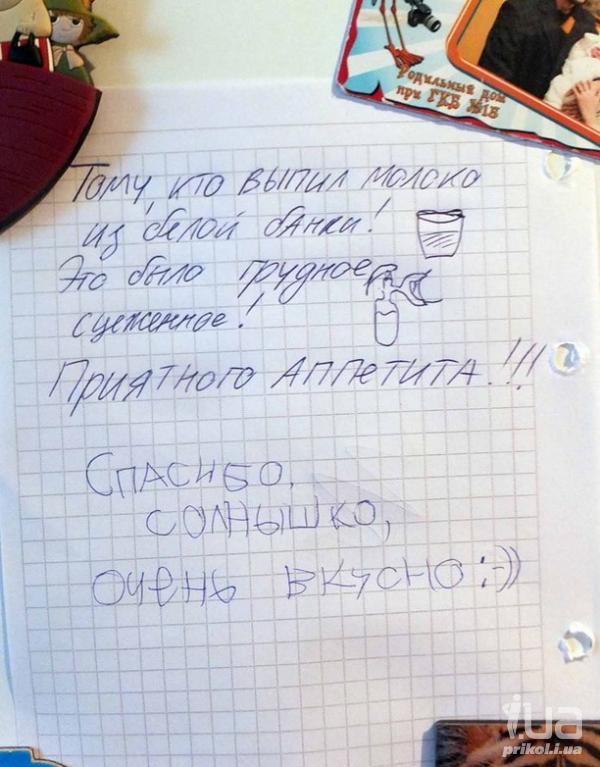 Родильный дом
при ГКБ №15
Тому, кто выпил молоко
из белой банки!
Это было грудное
сцеженное!
Приятного аппетита!!!
Спасибо,
солнышко,
очень вкусно :-))
i.ua
prikol.i.ua